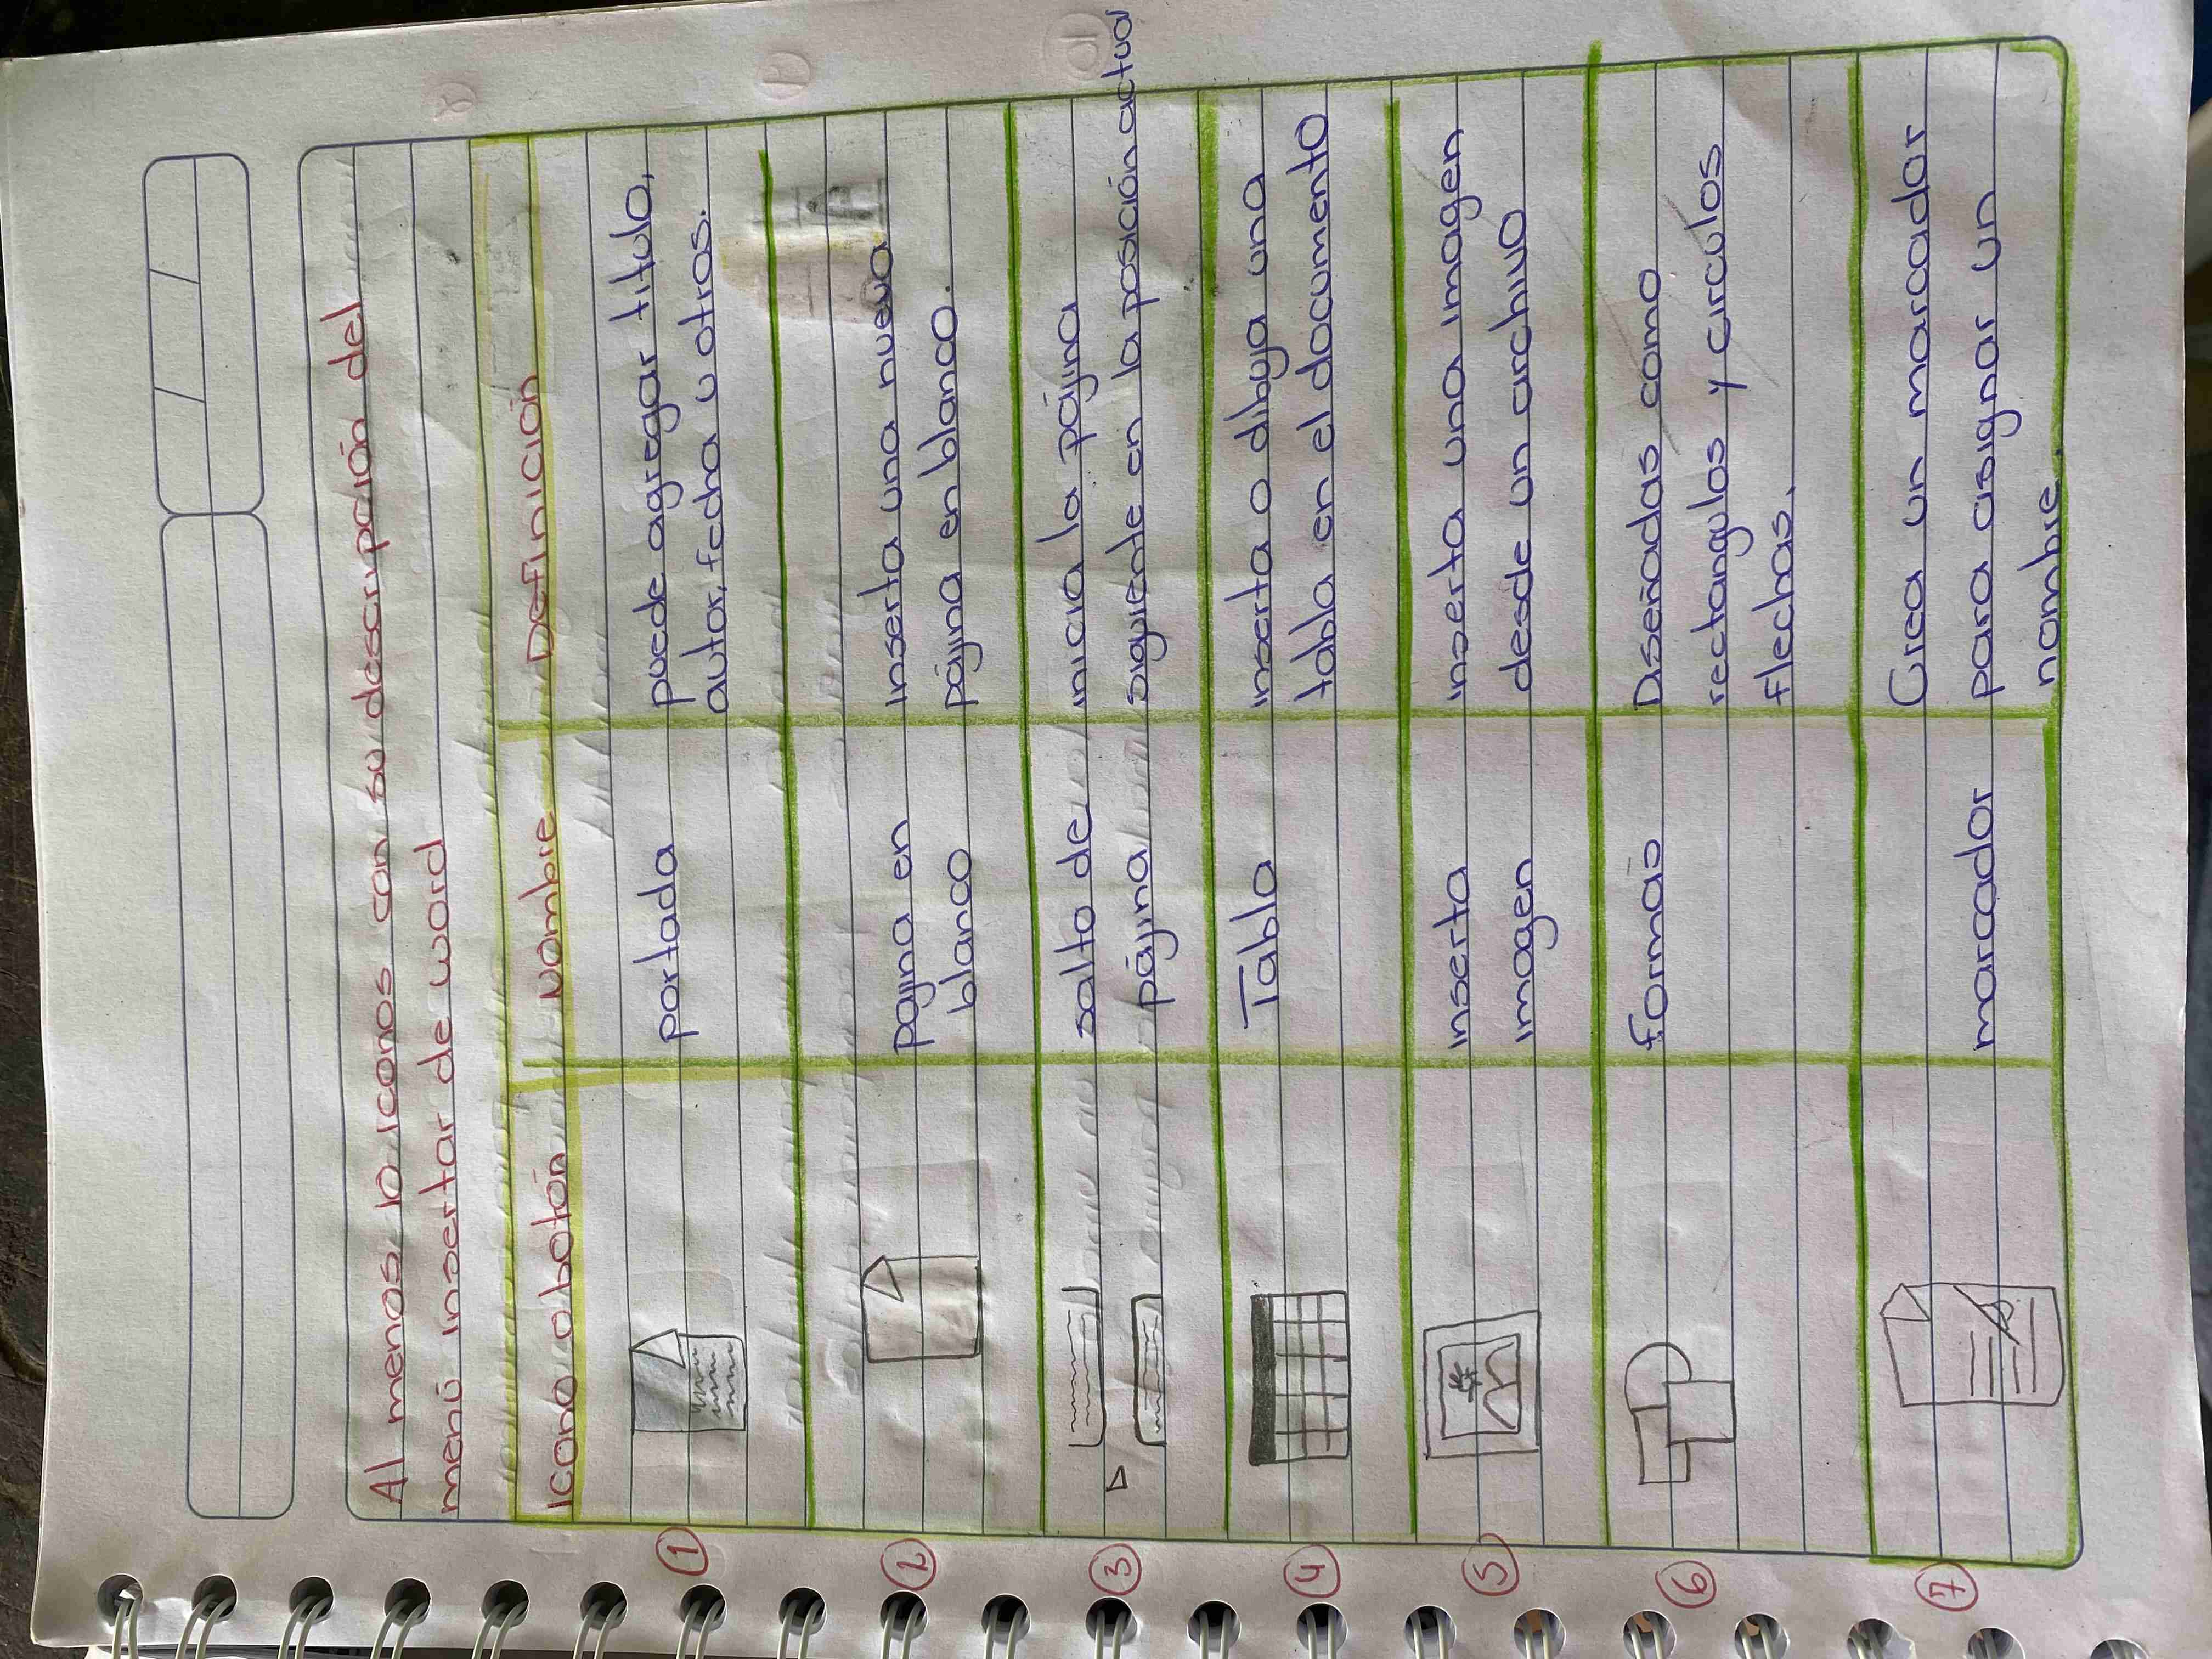 Al menos 10 iconos con su descripción del
menú insertar de word
Icono o botón Nombre Definición
1 portada puede agregar titulo,
autor, fecha u otros.
2 pajina en inserta una nueva
blanco pájina en blanco.
3 salto de inicia la pájina
pájina siguiente en la posición actual
4 Tabla inserta o dibuja una
tabla en el documento
5 inserta inserta una imagen
imagen desde un archivo
6 formas Diseñadas como
rectangulos y circulos
flechas.
7 marcador Crea un marcador
para asignar un
nombre.